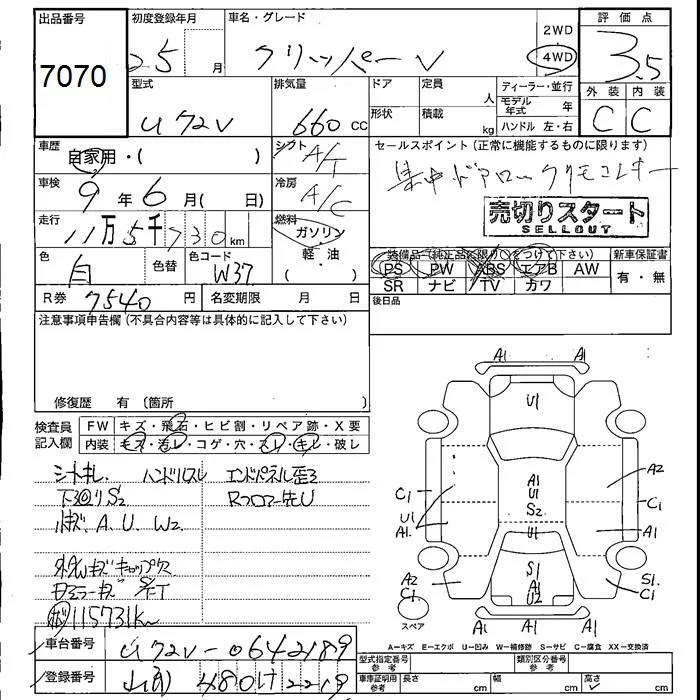 出品番号
7070
初度登録年月
25 月
車名・グレード
クリッパー V
2WD
4WD
評価点
3.5
外装 内装
C C
型式
U72V
排気量
660 CC
ドア
形状
定員 人
積載 kg
ディーラー・並行
モデル年式 年
ハンドル 左・右
車歴
自家用・( )
シフト
A/T
車検
9年6月( 日)
冷房
A/C
走行
11万5千730km
燃料
ガソリン
軽・油
( )
色
白
色替
色コード
W37
R券 7540円
名変期限 月 日
セールスポイント(正常に機能するものに限ります)
集中ドアロック リモコンキー
売切りスタート
SELLOUT
装備品(純正品に限り○をつけて下さい)
PS PW ABS エアB AW
SR ナビ TV カワ
新車保証書
有・無
後日品
注意事項申告欄(不具合内容等は具体的に記入して下さい)
修復歴 有(箇所 )
検査員記入欄
FW キズ・飛石・ヒビ割・リペア跡・X要
内装 キズ・汚レ・コゲ・穴・スレ・キレ・破レ
シートキレ. ハンドルスレ エンドパネル歪ミ
下廻りS2 Rフロアー先U
小キズ、A、U、W2
115731km
A1 A1
U1
A1
U1
S2
A2
C1
C1
U1
A1
A1
S1
A1
U2
A2
C1
S1
C1
A1 A1
スペア
A=キズ E=エクボ U=凹み W=補修跡 S=サビ C=腐食 XX=交換済
車台番号 U72V-0642189
登録番号 480 け 2219
型式指定番号 参考
類別区分番号 参考
車庫証明用 参考
長さ cm
幅 cm
高さ cm